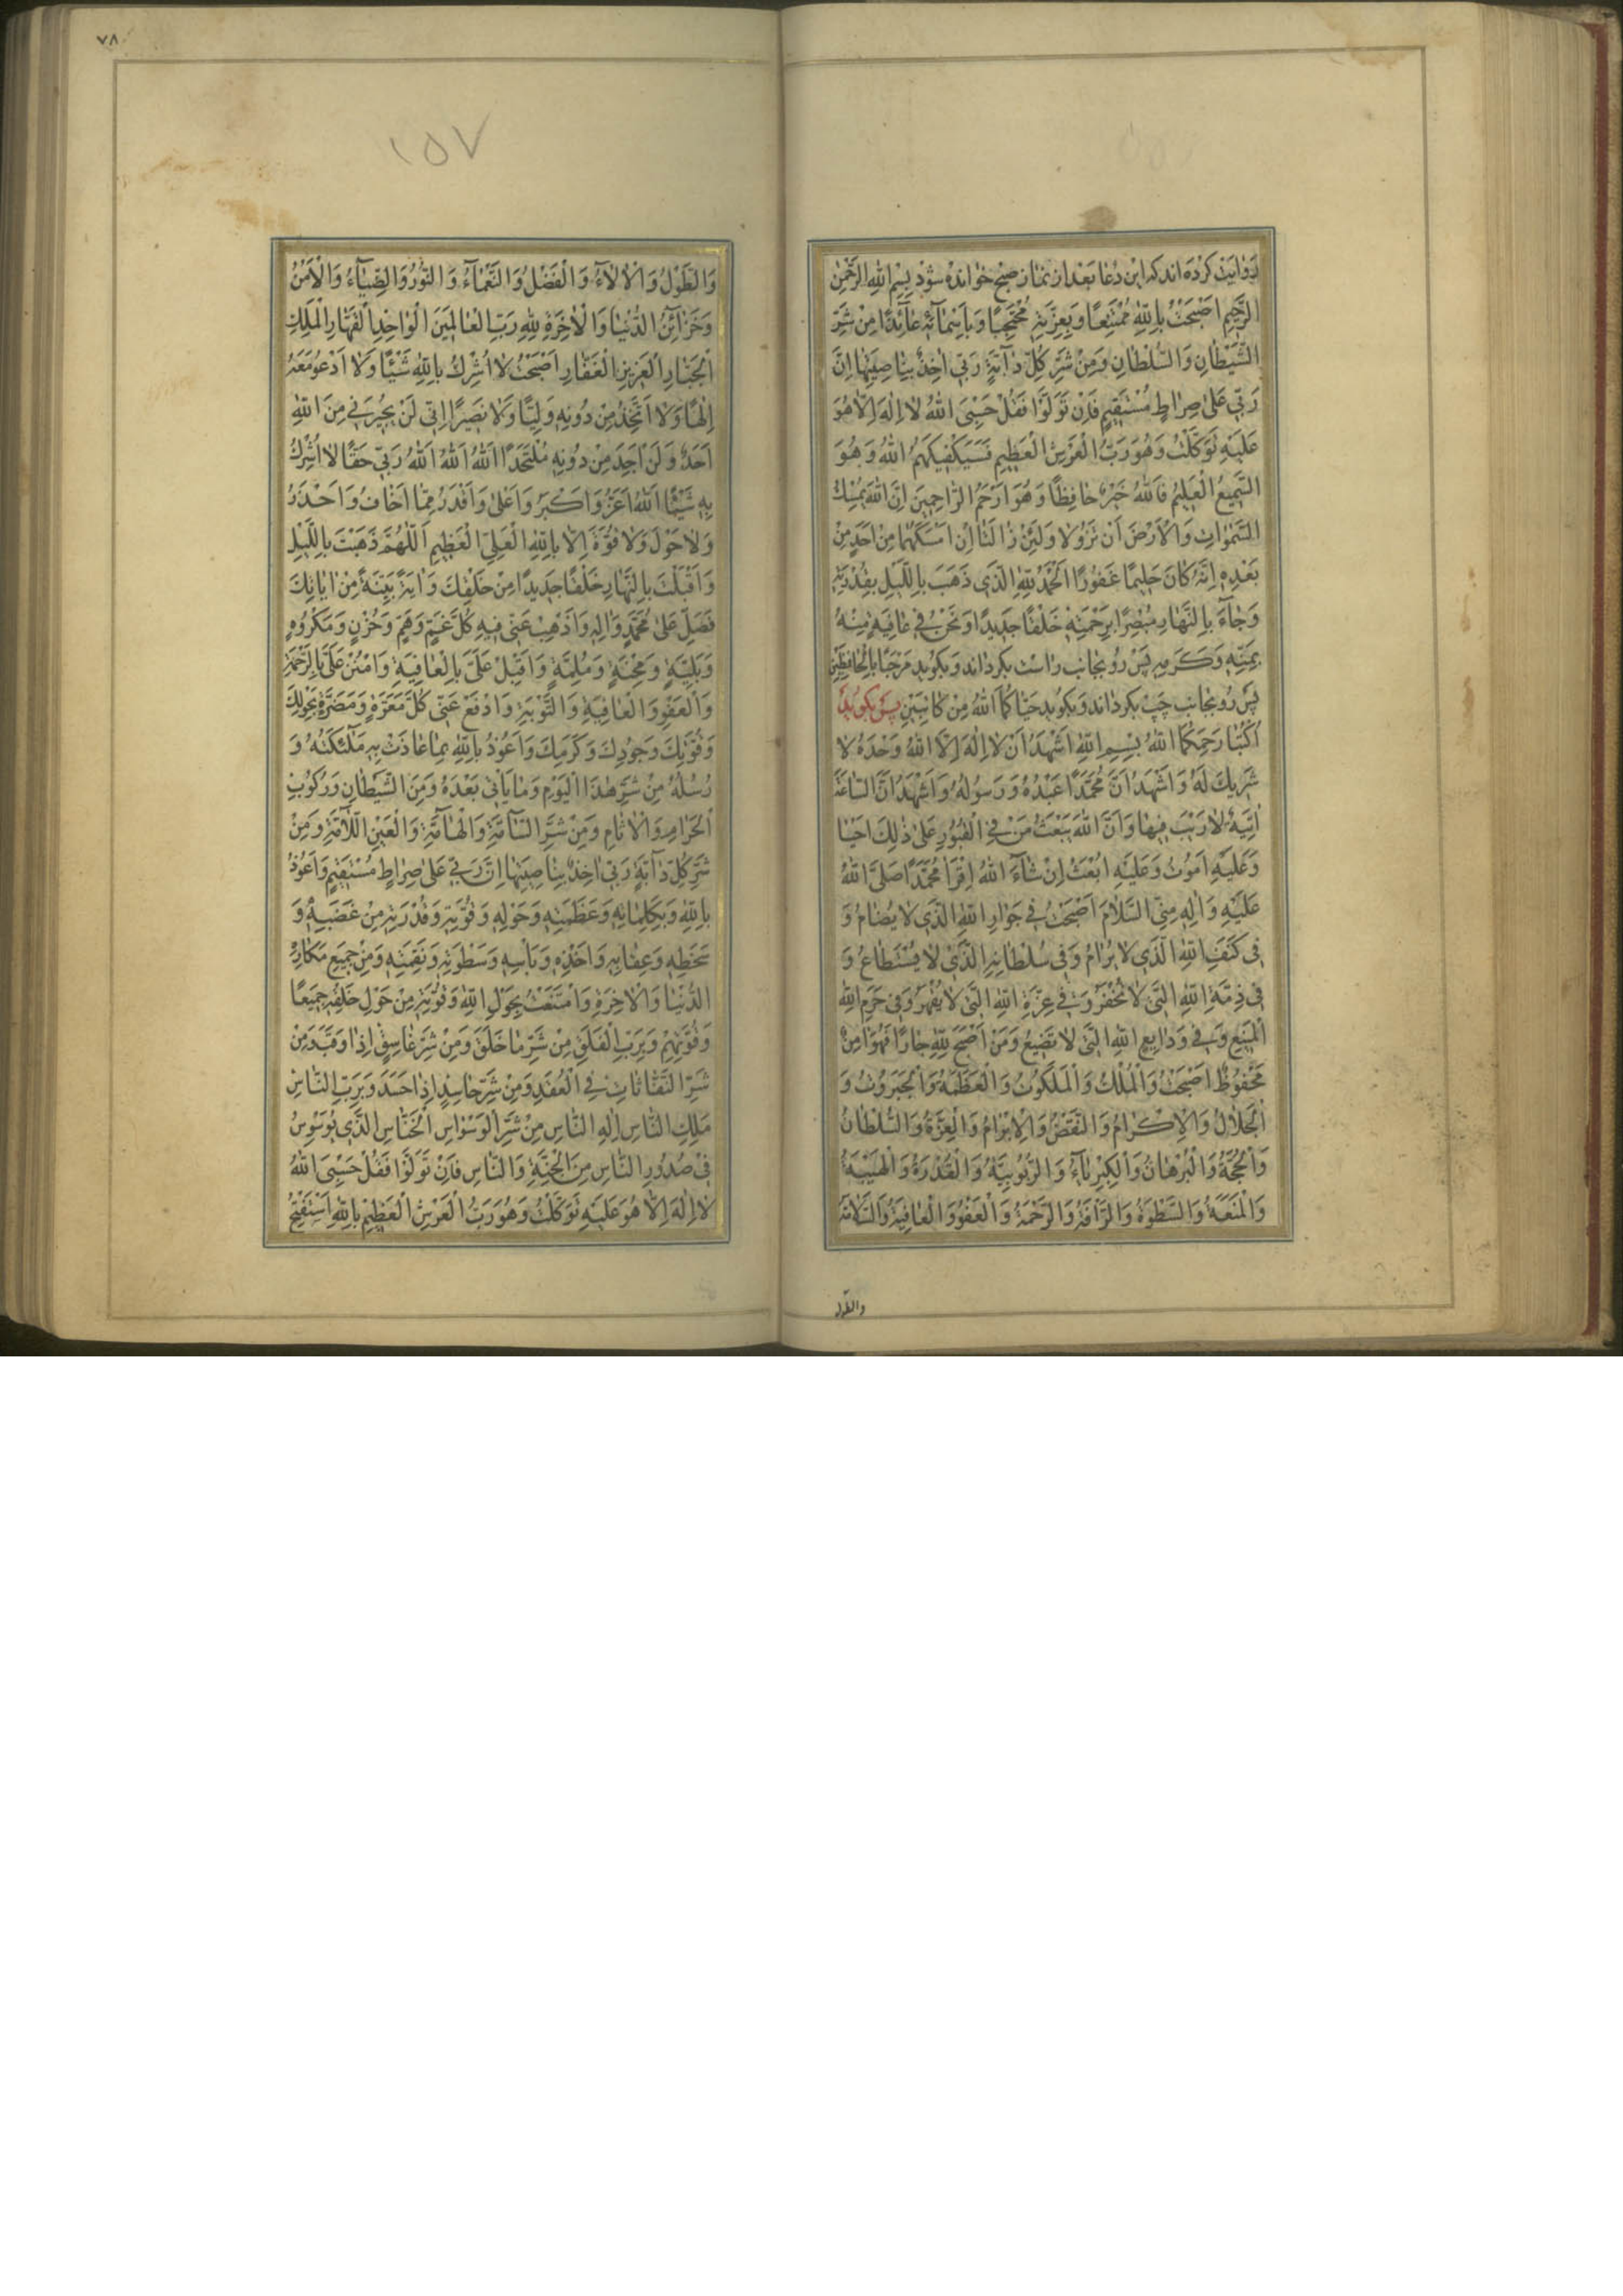 روایت کرده اند که این دعا بعد از نماز صبح خوانده شود بِسْمِ اللهِ الرَّحْمٰنِ
الرَّحِیمِ اَصْبَحْتُ بِاللّٰهِ مُمْتَنِعًا وَ بِعِزَّتِهِ مُحْتَجِبًا وَ بِاَسْمَائِهِ عَائِذًا مِنْ شَرِّ
الشَّیْطَانِ وَ السُّلْطَانِ وَ مِنْ شَرِّ کُلِّ دَآبَّةٍ رَبِّی اٰخِذٌ بِنَاصِیَتِهَا اِنَّ
رَبِّی عَلیٰ صِرَاطٍ مُسْتَقِیمٍ فَاِنْ تَوَلَّوْا فَقُلْ حَسْبِیَ اللهُ لَا اِلٰهَ اِلَّا هُوَ
عَلَیْهِ تَوَکَّلْتُ وَ هُوَ رَبُّ الْعَرْشِ الْعَظِیمِ فَسَیَکْفِیکَهُمُ اللهُ وَ هُوَ
السَّمِیعُ الْعَلِیمُ فَاللهُ خَیْرٌ حَافِظًا وَ هُوَ اَرْحَمُ الرَّاحِمِینَ اِنَّ اللهَ یُمْسِکُ
السَّمٰوَاتِ وَ الْاَرْضَ اَنْ تَزُولَا وَ لَئِنْ زَالَتَا اِنْ اَمْسَکَهُمَا مِنْ اَحَدٍ مِنْ
بَعْدِهِ اِنَّهُ کَانَ حَلِیمًا غَفُورًا اَلْحَمْدُ لِلّٰهِ الَّذِی ذَهَبَ بِاللَّیْلِ بِقُدْرَتِهِ
وَ جَاءَ بِالنَّهَارِ مُبْصِرًا بِرَحْمَتِهِ خَلْقًا جَدِیدًا وَ نَحْنُ فِی عَافِیَةٍ مِنْهُ
بِمَنِّهِ وَ کَرَمِهِ پس رو بجانب راست بکرداند و بکوید مَرْحَبًا بِالْحَافِظَیْنِ
پس رو بجانب چپ بکرداند و بکوید حَیَّاکُمَا اللهُ مِنْ کَاتِبَیْنِ پس بکوید
اُکْتُبَا رَحِمَکُمَا اللهُ بِسْمِ اللهِ اَشْهَدُ اَنْ لَا اِلٰهَ اِلَّا اللهُ وَحْدَهُ لَا
شَرِیکَ لَهُ وَ اَشْهَدُ اَنَّ مُحَمَّدًا عَبْدُهُ وَ رَسُولُهُ وَ اَشْهَدُ اَنَّ السَّاعَةَ
اٰتِیَةٌ لَا رَیْبَ فِیهَا وَ اَنَّ اللهَ یَبْعَثُ مَنْ فِی الْقُبُورِ عَلیٰ ذٰلِکَ اَحْیَا
وَ عَلَیْهِ اَمُوتُ وَ عَلَیْهِ اُبْعَثُ اِنْ شَاءَ اللهُ اِقْرَأْ مُحَمَّدًا صَلَّی اللهُ
عَلَیْهِ وَ اٰلِهِ مِنِّی السَّلَامَ اَصْبَحْتُ فِی جِوَارِ اللهِ الَّذِی لَا یُضَامُ وَ
فِی کَنَفِ اللهِ الَّذِی لَا یُرَامُ وَ فِی سُلْطَانِهِ الَّذِی لَا یُسْتَطَاعُ وَ
فِی ذِمَّةِ اللهِ الَّتِی لَا تُخْفَرُ وَ فِی عِزَّةِ اللهِ الَّتِی لَا یُقْهَرُ وَ فِی حَرَمِ اللهِ
الْمَنِیعِ وَ فِی وَدَایِعِ اللهِ الَّتِی لَا تَضِیعُ وَ مَنْ اَصْبَحَ لِلّٰهِ جَارًا فَهُوَ اٰمِنٌ
مَحْفُوظٌ اَصْبَحْتُ وَ الْمُلْکُ وَ الْمَلَکُوتُ وَ الْعَظَمَةُ وَ الْجَبَرُوتُ وَ
الْجَلَالُ وَ الْاِکْرَامُ وَ النَّقْضُ وَ الْاِبْرَامُ وَ الْعِزَّةُ وَ السُّلْطَانُ
وَ الْحُجَّةُ وَ الْبُرْهَانُ وَ الْکِبْرِیَاءُ وَ الرُّبُوبِیَّةُ وَ الْقُدْرَةُ وَ الْهَیْبَةُ
وَ الْمَنَعَةُ وَ السَّطْوَةُ وَ الرَّاْفَةُ وَ الرَّحْمَةُ وَ الْعَفْوُ وَ الْعَافِیَةُ وَ السَّلَامَةُ
والطول
٧٨
١٥٧
وَ الطَّوْلُ وَ الْاٰلَاءُ وَ الْفَضْلُ وَ النَّعْمَاءُ وَ النُّورُ وَ الضِّیَاءُ وَ الْاَمْنُ
وَ خَزَائِنُ الدُّنْیَا وَ الْاٰخِرَةِ لِلّٰهِ رَبِّ الْعَالَمِینَ الْوَاحِدِ الْقَهَّارِ الْمَلِکِ
الْجَبَّارِ الْعَزِیزِ الْغَفَّارِ اَصْبَحْتُ لَا اُشْرِکُ بِاللّٰهِ شَیْئًا وَ لَا اَدْعُو مَعَهُ
اِلٰهًا وَ لَا اَتَّخِذُ مِنْ دُونِهِ وَلِیًّا وَ لَا نَصِیرًا اِنِّی لَنْ یُجِیرَنِی مِنَ اللهِ
اَحَدٌ وَ لَنْ اَجِدَ مِنْ دُونِهِ مُلْتَحَدًا اَللهُ اَللهُ اَللهُ رَبِّی حَقًّا لَا اُشْرِکُ
بِهِ شَیْئًا اَللهُ اَعَزُّ وَ اَکْبَرُ وَ اَعْلیٰ وَ اَقْدَرُ مِمَّا اَخَافُ وَ اَحْذَرُ
وَ لَا حَوْلَ وَ لَا قُوَّةَ اِلَّا بِاللّٰهِ الْعَلِیِّ الْعَظِیمِ اَللّٰهُمَّ ذَهَبْتَ بِاللَّیْلِ
وَ اَقْبَلْتَ بِالنَّهَارِ خَلْقًا جَدِیدًا مِنْ خَلْقِکَ وَ اٰیَةً بَیِّنَةً مِنْ اٰیَاتِکَ
فَصَلِّ عَلیٰ مُحَمَّدٍ وَ اٰلِهِ وَ اَذْهِبْ عَنِّی فِیهِ کُلَّ غَمٍّ وَ هَمٍّ وَ حُزْنٍ وَ مَکْرُوهٍ
وَ بَلِیَّةٍ وَ مِحْنَةٍ وَ مُلِمَّةٍ وَ اَقْبِلْ عَلَیَّ بِالْعَافِیَةِ وَ امْنُنْ عَلَیَّ بِالرَّحْمَةِ
وَ الْعَفْوِ وَ الْعَافِیَةِ وَ التَّوْبَةِ وَ ادْفَعْ عَنِّی کُلَّ مَعَرَّةٍ وَ مَضَرَّةٍ بِحَوْلِکَ
وَ قُوَّتِکَ وَ جُودِکَ وَ کَرَمِکَ وَ اَعُوذُ بِاللّٰهِ بِمَا عَاذَتْ بِهِ مَلٰئِکَتُهُ وَ
رُسُلُهُ مِنْ شَرِّ هٰذَا الْیَوْمِ وَ مَا یَأْتِی بَعْدَهُ وَ مِنَ الشَّیْطَانِ وَ رُکُوبِ
الْحَرَامِ وَ الْاٰثَامِ وَ مِنْ شَرِّ السَّآمَّةِ وَ الْهَآمَّةِ وَ الْعَیْنِ اللَّآمَّةِ وَ مِنْ
شَرِّ کُلِّ دَآبَّةٍ رَبِّی اٰخِذٌ بِنَاصِیَتِهَا اِنَّ رَبِّی عَلیٰ صِرَاطٍ مُسْتَقِیمٍ وَ اَعُوذُ
بِاللّٰهِ وَ بِکَلِمَاتِهِ وَ عَظَمَتِهِ وَ حَوْلِهِ وَ قُوَّتِهِ وَ قُدْرَتِهِ مِنْ غَضَبِهِ وَ
سَخَطِهِ وَ عِقَابِهِ وَ اَخْذِهِ وَ بَأْسِهِ وَ سَطْوَتِهِ وَ نَقِمَتِهِ وَ مِنْ جَمِیعِ مَکَارِهِ
الدُّنْیَا وَ الْاٰخِرَةِ وَ امْتَنَعْتُ بِحَوْلِ اللهِ وَ قُوَّتِهِ مِنْ حَوْلِ خَلْقِهِ جَمِیعًا
وَ قُوَّتِهِمْ وَ بِرَبِّ الْفَلَقِ مِنْ شَرِّ مَا خَلَقَ وَ مِنْ شَرِّ غَاسِقٍ اِذَا وَقَبَ وَ مِنْ
شَرِّ النَّفَّاثَاتِ فِی الْعُقَدِ وَ مِنْ شَرِّ حَاسِدٍ اِذَا حَسَدَ وَ بِرَبِّ النَّاسِ
مَلِکِ النَّاسِ اِلٰهِ النَّاسِ مِنْ شَرِّ الْوَسْوَاسِ الْخَنَّاسِ الَّذِی یُوَسْوِسُ
فِی صُدُورِ النَّاسِ مِنَ الْجِنَّةِ وَ النَّاسِ فَاِنْ تَوَلَّوْا فَقُلْ حَسْبِیَ اللهُ
لَا اِلٰهَ اِلَّا هُوَ عَلَیْهِ تَوَکَّلْتُ وَ هُوَ رَبُّ الْعَرْشِ الْعَظِیمِ بِاللّٰهِ اَسْتَفْتِحُ